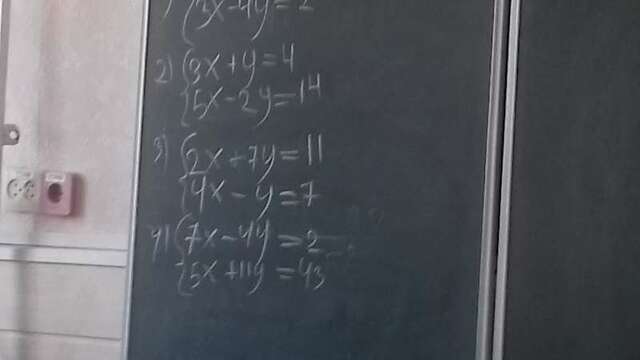 {3x-4y=2
2) {3x+y=4
{5x-2y=14
3) {2x+7y=11
{4x-y=7
4) {7x-4y=2
{5x+11y=43